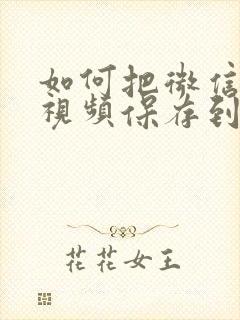 如何把微信
視頻保存到
花花女王